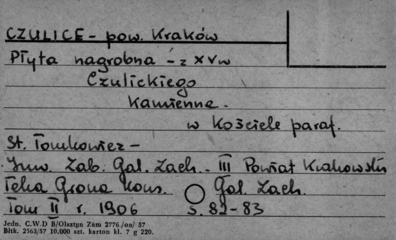 CZULICE - pow. Kraków
Płyta nagrobna - z XV w
Czulickiego
Kamienna.
w Kościele paraf.
St. Tomkowicz -
Inw. Zab. Gal. Zach. - III Powiat Krakowski
Teka Grona Kons. Gal. Zach.
Tom II r. 1906 s. 82-83
Jedn. C.W.D B/Olsztyn Zam 2776/on/57
Bltk. 2563/57 10.000 szt. karton kl. 7 g 220.